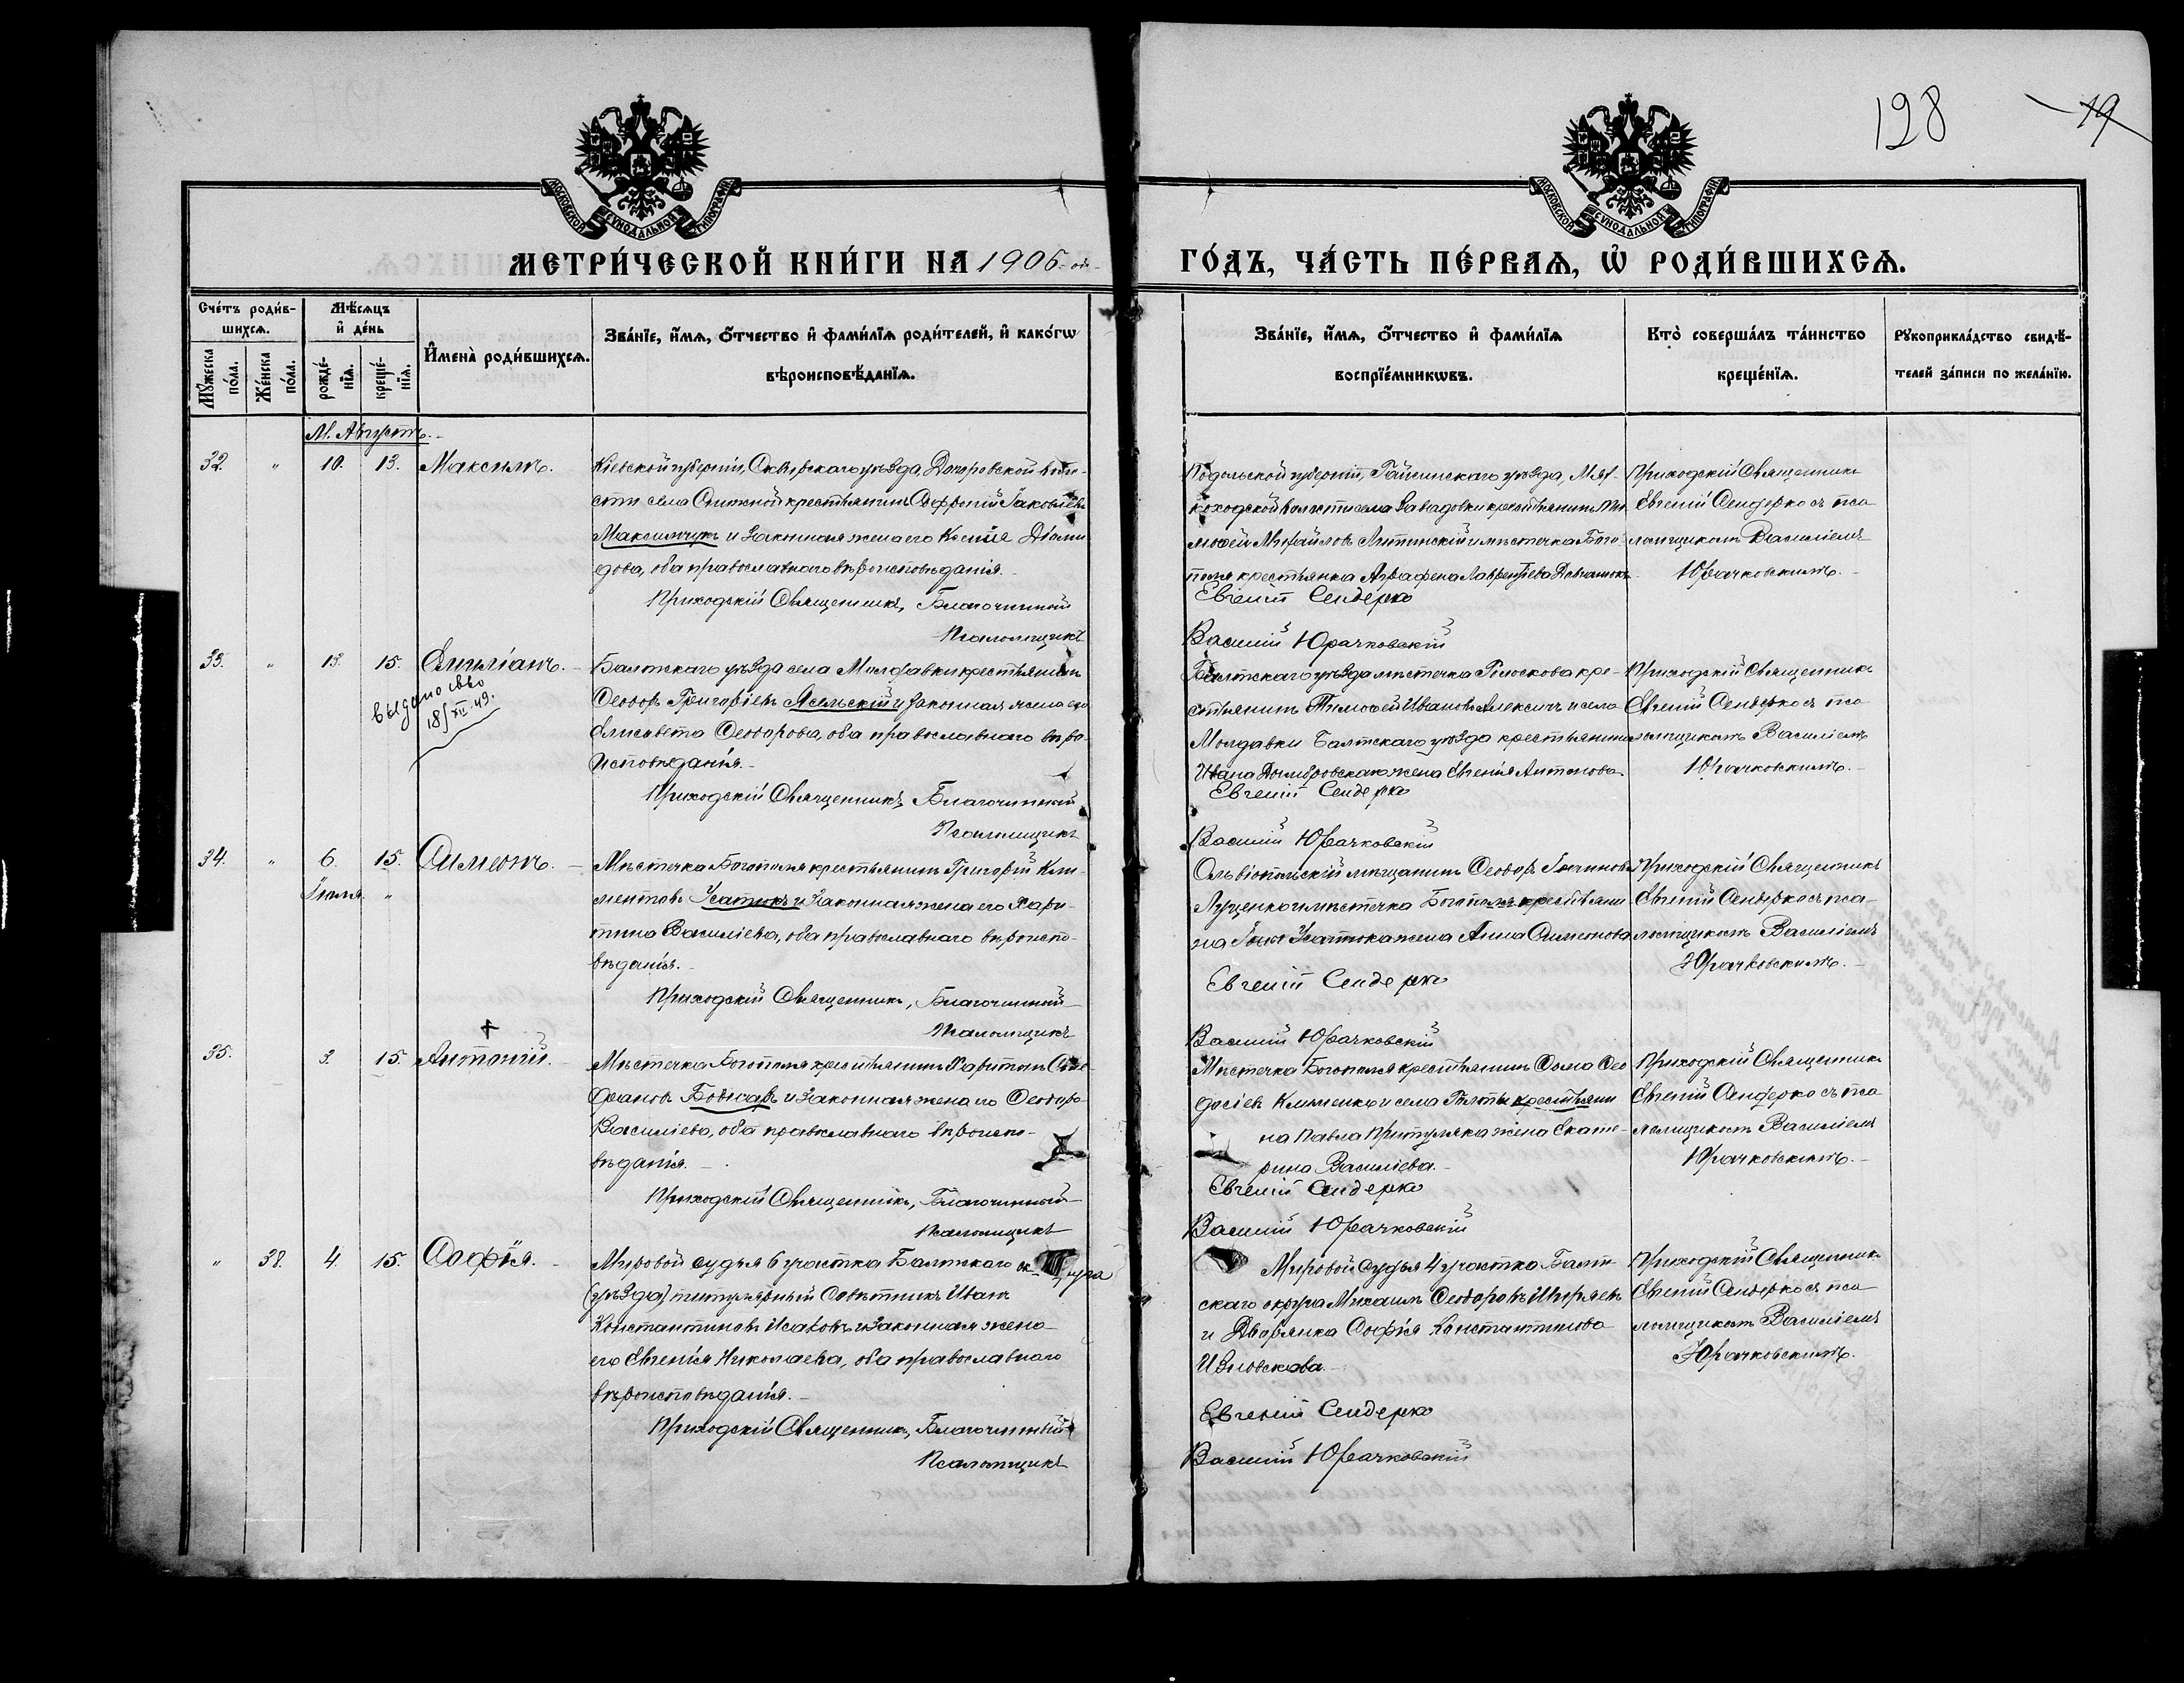 128
19
МОСКОВСКОЙ СУНОДАЛЬНОЙ ТИПОГРАФІИ
МОСКОВСКОЙ СУНОДАЛЬНОЙ ТИПОГРАФІИ
МЕТРИ́ЧЕСКОЙ КНИ́ГИ НА 1906
ГО́ДЪ, ЧА́СТЬ ПЕ́РВАѦ, Ѡ҆ РОДИ́ВШИХСѦ.
Сче́тъ роди́в-
шихсѧ.
Мꙋ́жеска по́ла.
Же́нска по́ла.
Мѣ́сѧцъ
и҆ де́нь
рожде́-
нїѧ.
креще́-
нїѧ.
И҆мена̀ роди́вшихсѧ.
Зва́нїе, и҆́мѧ, ѻ҆́тчество и҆ фами́лїѧ роди́телей, и҆ како́гѡ
вѣроисповѣ́данїѧ.
Зва́нїе, и҆́мѧ, ѻ҆́тчество и҆ фами́лїѧ
воспрїе́мникѡвъ.
Кто̀ соверша́лъ та́инство
креще́нїѧ.
Рꙋкоприкла́дство свидѣ́-
телей за́писи по жела́нїю.
М. Августъ.
32. " 10. 13. Максимъ.
Кіевской губерніи, Сквирскаго уѣзда,
сти села крестьянинъ Софроній Іаковлевъ
Максимчукъ и законная жена его Ксенія Діоми-
дова, оба православнаго вѣроисповѣданія.
Приходскій Священникъ, Благочинный
Псаломщикъ
Подольской губерніи, Гайсинскаго уѣзда, Мят-
коходской волости села Завадовки крестьянинъ Ти-
моѳей Михайловъ и мѣстечка Бого-
поля крестьянка Аграфена Лаврентіева
Евгеній Сендерко
Василій Юрачковскій
Приходскій Священникъ
Евгеній Сендерко съ пса-
ломщикомъ Василіемъ
Юрачковскимъ.
33. " 13. 15. Емиліанъ.
выдано св-во
18/XII-49.
Балтскаго уѣзда села Молдавки крестьянинъ
Ѳеодоръ Григоріевъ Ясельскій и законная жена его
Елисавета Ѳеодорова, оба православнаго вѣро-
исповѣданія.
Приходскій Священникъ, Благочинный
Псаломщикъ
Балтскаго уѣзда мѣстечка Голоскова кре-
стьянинъ Тимоѳей Ивановъ Алексичъ и села
Молдавки Балтскаго уѣзда крестьянина
Ивана Домбровскаго жена Евгенія Антонова.
Евгеній Сендерко
Василій Юрачковскій
Приходскій Священникъ
Евгеній Сендерко съ пса-
ломщикомъ Василіемъ
Юрачковскимъ.
34. " 6. 15. Симеонъ.
Іюля. "
Мѣстечка Богополя крестьянинъ Григорій Кли-
ментовъ Усатюкъ и законная жена его Хари-
тина Василіева, оба православнаго вѣроиспо-
вѣданія.
Приходскій Священникъ, Благочинный
Псаломщикъ
Ольвіопольскій мѣщанинъ Ѳеодоръ
Луценко и мѣстечка Богополя крестьяни-
на Усатюка жена Анна Симеонова
Евгеній Сендерко
Василій Юрачковскій
Приходскій Священникъ
Евгеній Сендерко съ пса-
ломщикомъ Василіемъ
Юрачковскимъ.
35. 3. 15. Антоній.
Мѣстечка Богополя крестьянинъ Харитонъ Сте-
фановъ Бойчаръ и законная жена его Ѳеодора
Василіева, оба православнаго вѣроиспо-
вѣданія.
Приходскій Священникъ, Благочинный
Псаломщикъ
Мѣстечка Богополя крестьянинъ Ѳома Ѳео-
досіевъ Клименко и села крестьяни-
на Павла Притуляка жена Екате-
рина Василіева.
Евгеній Сендерко
Василій Юрачковскій
Приходскій Священникъ
Евгеній Сендерко съ пса-
ломщикомъ Василіемъ
Юрачковскимъ.
" 38. 4. 15. Софія.
Мировой судья 6 участка Балтскаго округа
(уѣзда) титулярный Совѣтникъ Иванъ
Константиновъ Исаковъ и законная жена
его Евгенія Николаева, оба православнаго
вѣроисповѣданія.
Приходскій Священникъ, Благочинный
Псаломщикъ
Мировой Судья 4 участка Балт-
скаго округа Михаилъ Ѳеодоровъ Ширяевъ
и Дворянка Софія Константинова
Евгеній Сендерко
Василій Юрачковскій
Приходскій Священникъ
Евгеній Сендерко съ пса-
ломщикомъ Василіемъ
Юрачковскимъ.